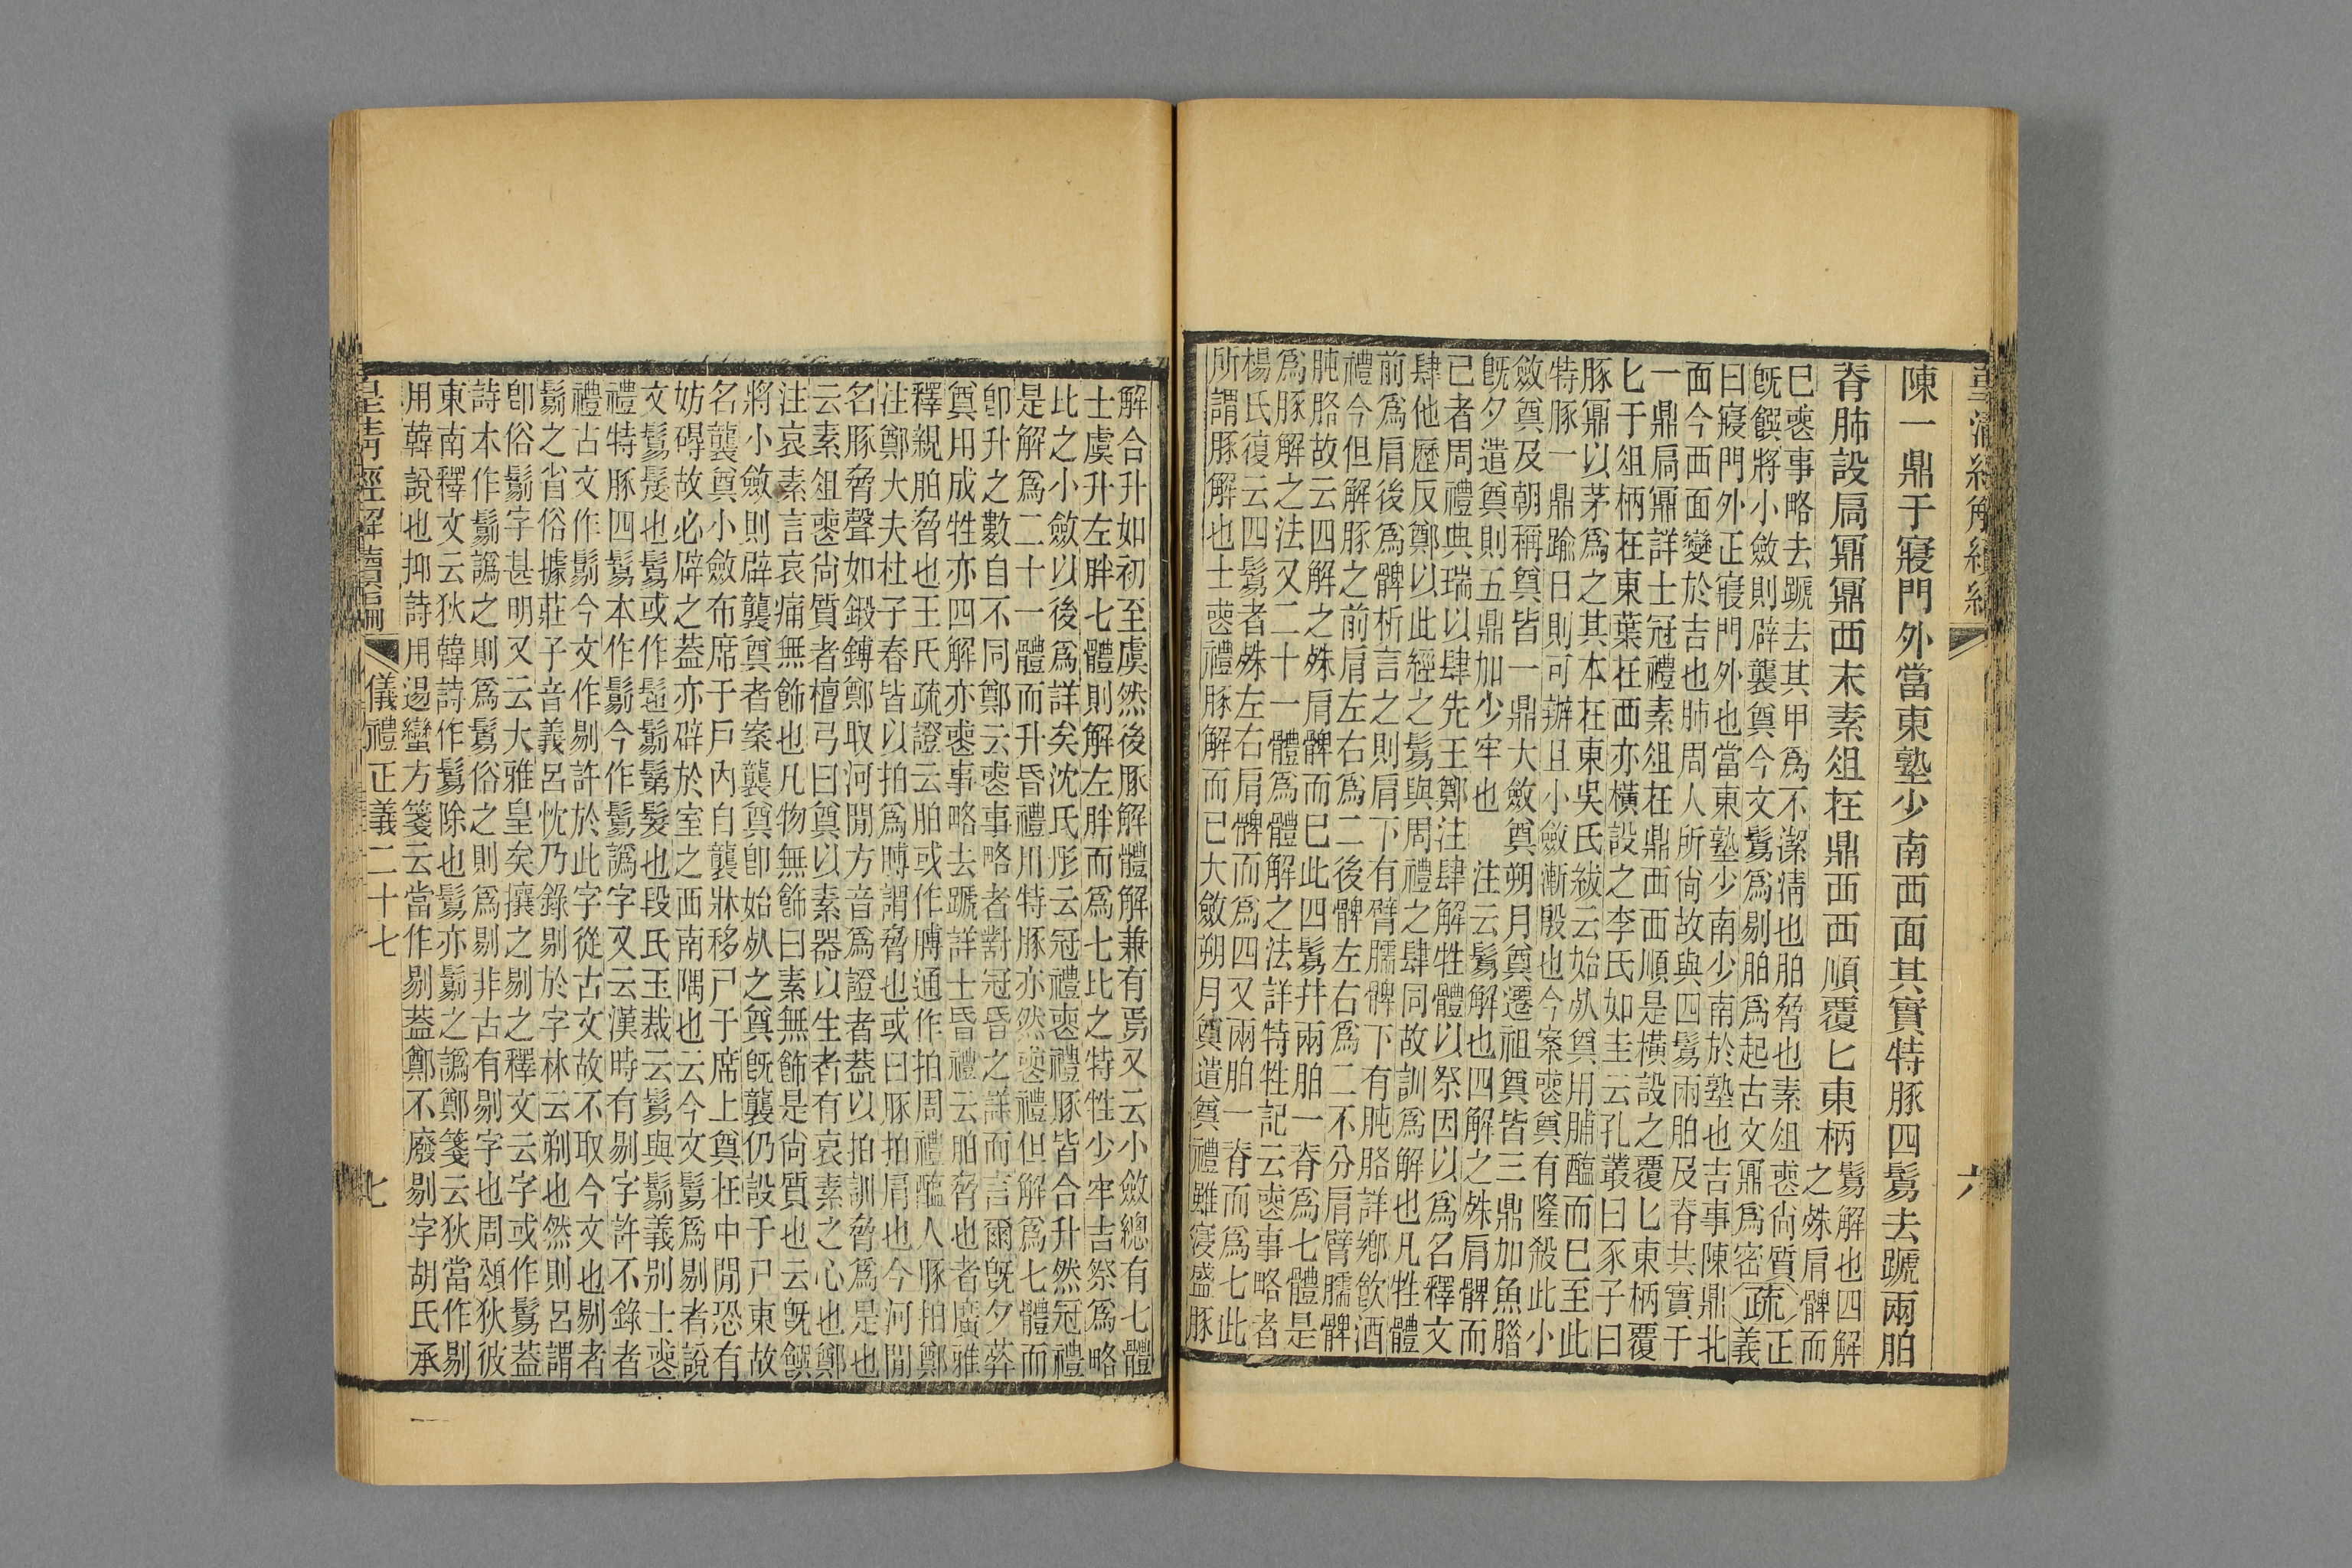 皇清經解續編　六
陳一鼎于寢門外當東塾少南西面其實特豚四鬄去蹏兩胉
脊肺設扃鼏鼏西末素俎在鼎西西順覆匕東柄鬄解也四解
之殊肩髀而
已喪事略去蹏去其甲爲不潔淸也胉脅也素俎喪尚質疏正
既饌將小斂則辟襲奠今文鬄爲剔胉爲起古文鼏爲密義
曰寢門外正寢門外也當東塾少南少南於塾也吉事陳鼎北
面今西面變於吉也肺周人所尚故與四鬄兩胉及脊共實于
一鼎扃鼏詳士冠禮素俎在鼎西西順是橫設之覆匕東柄覆
匕于俎柄在東葉在西亦橫設之李氏如圭云孔叢曰豕子曰
豚鼏以茅爲之其本在東吳氏紱云始死奠用脯醢而已至此
特豚一鼎踰日則可辦且小斂漸殷也今案喪奠有隆殺此小
斂奠及朝稱奠皆一鼎大斂奠朔月奠遷祖奠皆三鼎加魚腊
既夕遣奠則五鼎加少牢也　注云鬄解也四解之殊肩髀而
已者周禮典瑞以肆先王鄭注肆解牲體以祭因以爲名釋文
肆他歷反鄭以此經之鬄與周禮之肆同故訓爲解也凡牲體
前爲肩後爲髀析言之則肩下有臂臑髀下有肫胳詳鄉飮酒
禮今但解豚之前肩左右爲二後髀左右爲二不分肩臂臑髀
肫胳故云四解之殊肩髀而已此四鬄幷兩胉一脊爲七體是
爲豚解之法又二十一體爲體解之法詳特牲記云喪事略者
楊氏復云四鬄者殊左右肩髀而爲四又兩胉一脊而爲七此
所謂豚解也士喪禮豚解而已大斂朔月奠遣奠禮雖寖盛豚
解合升如初至虞然後豚解體解兼有焉又云小斂總有七體
士虞升左胖七體則解左胖而爲七比之特牲少牢吉祭爲略
比之小斂以後爲詳矣沈氏彤云冠禮喪禮豚皆合升然冠禮
是解爲二十一體而升昏禮用特豚亦然喪禮但解爲七體而
卽升之數自不同鄭云喪事略者對冠昏之詳而言爾既夕葬
奠用成牲亦四解亦喪事略去蹏詳士昏禮云胉脅也者廣雅
釋親胉脅也王氏疏證云胉或作膊通作拍周禮醢人豚拍鄭
注鄭大夫杜子春皆以拍爲膊謂脅也或曰豚拍肩也今河閒
名豚脅聲如鍛鎛鄭取河閒方音爲證者葢以拍訓脅爲是也
云素俎喪尚質者檀弓曰奠以素器以生者有哀素之心也鄭
注哀素言哀痛無飾也凡物無飾曰素無飾是尚質也云既饌
將小斂則辟襲奠者案襲奠卽始死之奠既襲仍設于尸東故
名襲奠小斂布席于戶內自襲牀移尸于席上奠在中閒恐有
妨碍故必辟之葢亦辟於室之西南隅也云今文鬄爲剔者說
文鬄髲也鬄或作髢鬀鬄髮也段氏玉裁云鬄與鬀義别士喪
禮特豚四鬄本作鬀今作鬄譌字又云漢時有剔字許不錄者
禮古文作鬀今文作剔許於此字從古文故不取今文也剔者
鬀之省俗據莊子音義呂忱乃錄剔於字林云剃也然則呂謂
卽俗鬀字甚明又云大雅皇矣攘之剔之釋文云字或作鬄葢
詩本作鬀譌之則爲鬄俗之則爲剔非古有剔字也周頌狄彼
東南釋文云狄韓詩作鬄除也鬄亦鬀之譌鄭箋云狄當作剔
用韓說也抑詩用逷蠻方箋云當作剔葢鄭不廢剔字胡氏承
皇清經解續編　儀禮正義二十七　七